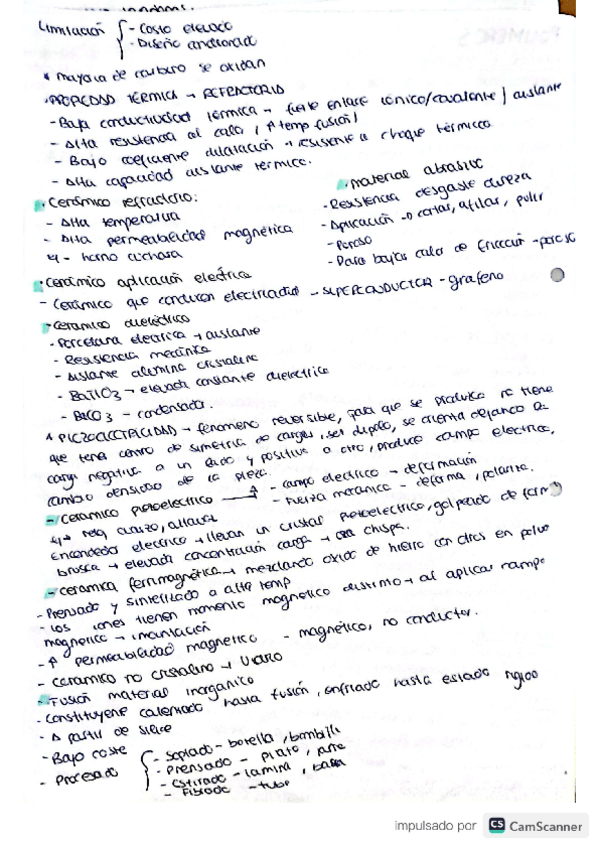 Limitación - Costo elevado
- Diseño
* mayoria de carburo se oxidan
· PROPIEDAD TÉRMICA → REFRACTARIO
- Baja conductividad térmica → fuerte enlace iónico/covalente / aislante
- Alta resistencia al calor / ↑ temp fusión /
- Bajo coeficiente dilatación → resistente a choque térmico
- Alta capacidad aislante térmico.
· Cerámico refractario:
- Alta temperatura
- Alta permeabilidad magnética
↳ - horno cuchara
· Material abrasivo
- Resistencia desgaste dureza
- Aplicación → cortar, afilar, pulir
- Poroso
- Para bajar calor de fricción - poroso
· Cerámico aplicación eléctrica
- Cerámico que conducen electricidad - SUPERCONDUCTOR - grafeno
· Cerámico dieléctrico
- Porcelana electrica → aislante
- Resistencia mecánica
- Aislante alumina cristalina
- BaTiO3 → elevada constante dielectrica
- BaCO3 - condensador.
* PIEZOELECTRICIDAD → fenomeno reversible, para que se produzca no tiene
que tener centro de simetria de cargas, ser dipolo, se orienta dejando la
carga negativa a un lado y positiva a otro, produce campo electrico,
cambio densidad de la pieza.
- Cerámico piezoelectrico → - campo electrico → deformación
- Fuerza mecánica - deforma, polariza.
↳ reloj cuarzo, altavoz
Encendedor electrico → llevan un cristal piezoelectrico, golpeado de forma
brusca → elevada concentración carga → crea chispa.
- Ceramica ferrimagnética → mezclando oxido de hierro con otros en polvo
- Prensado y sinterizado a alta temp
- Los iones tienen momento magnetico distinto → al aplicar campo
magnetico → imantación
- ↑ permeabilidad magnetica - magnético, no conductor.
- Ceramico no cristalino → Vidrio
- Fusión material inorganico
- Constituyente calentado hasta fusión, enfriado hasta estado rigido
- A partir de silice
- Bajo coste
- Procesado - Soplado - botella, bombilla
- Prensado - plato,
- Estirado - lamina, barra
- Fibrado - tubo
impulsado por CS CamScanner